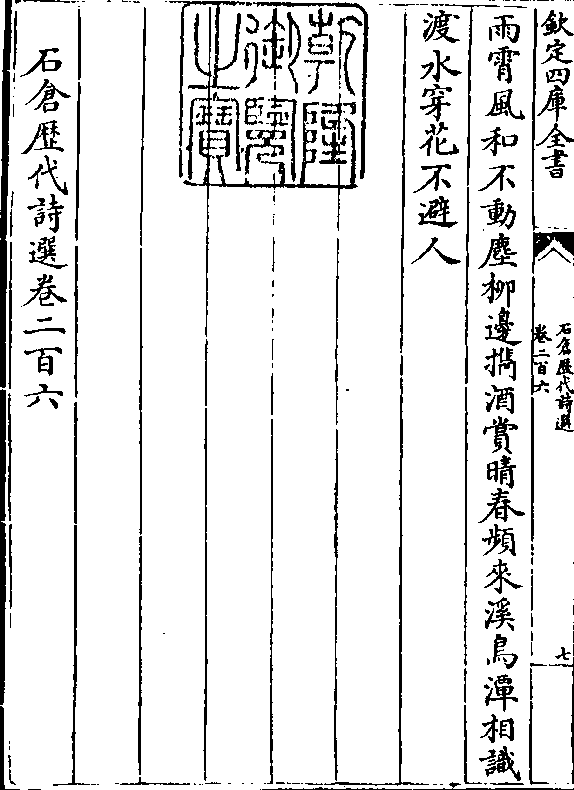 欽定四庫全書
石倉歷代詩選
卷二百六
七
雨霄風和不動塵柳邊擕酒賞晴春頻來溪鳥渾相識
渡水穿花不避人
乾隆御覽之寶
石倉歷代詩選卷二百六